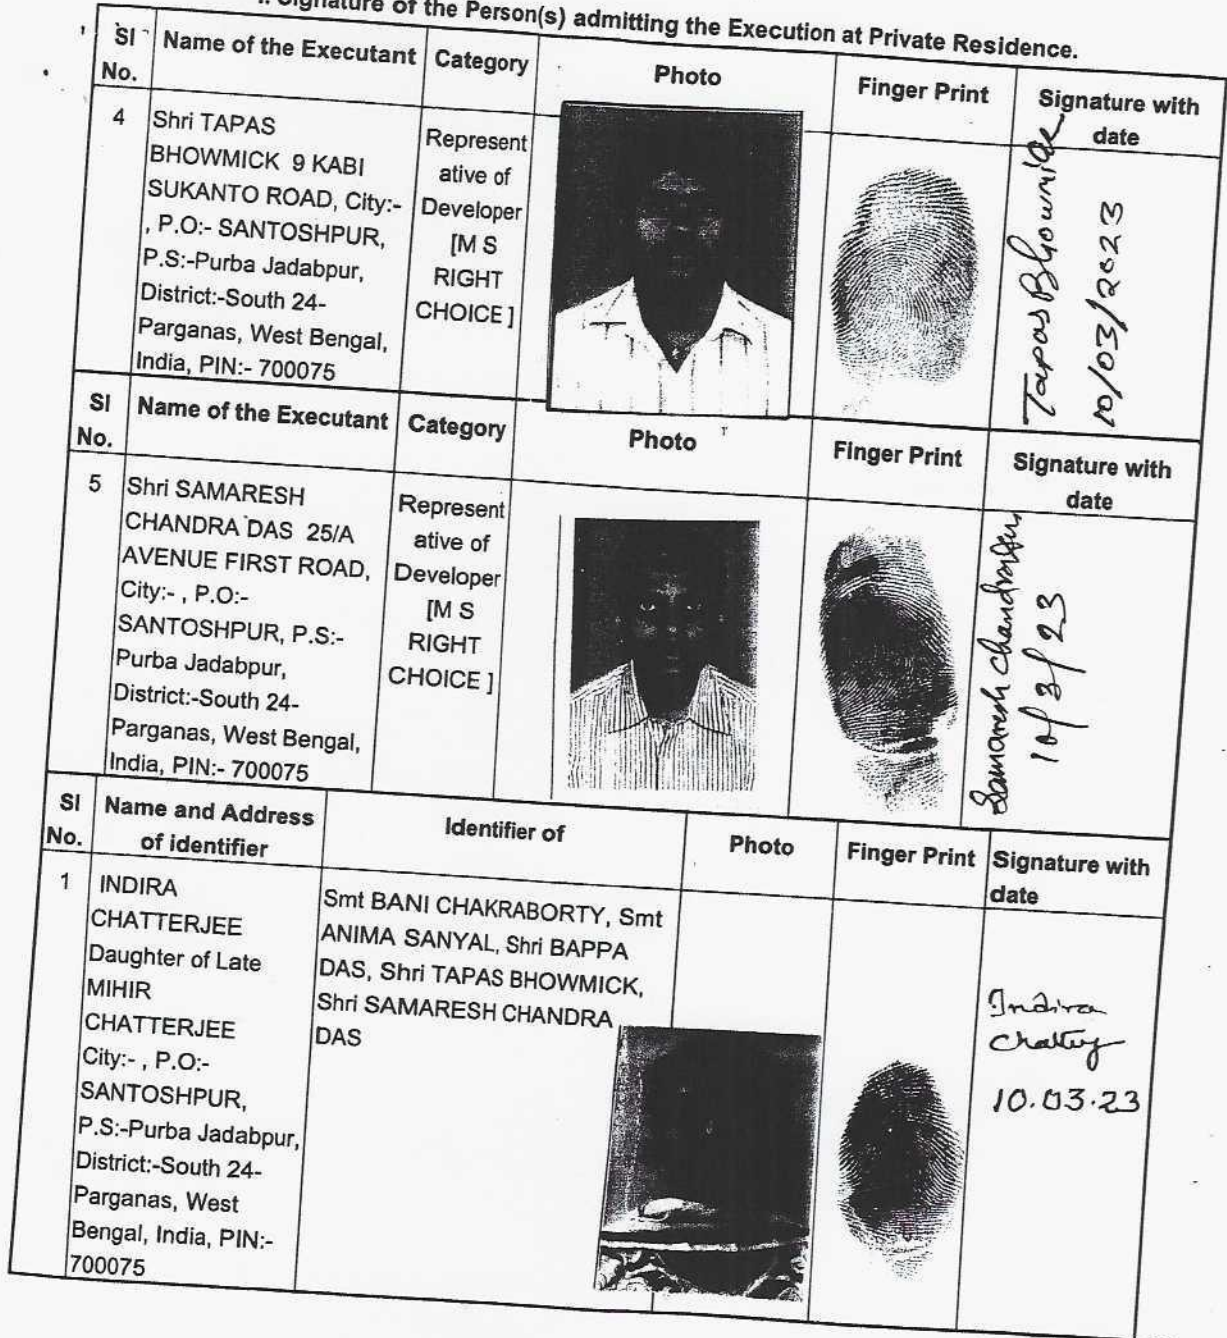 Signature of the Person(s) admitting the Execution at Private Residence.
Sl No. Name of the Executant Category Photo Finger Print Signature with date
4
Shri TAPAS
BHOWMICK 9 KABI
SUKANTO ROAD, City:-
, P.O:- SANTOSHPUR,
P.S:-Purba Jadabpur,
District:-South 24-
Parganas, West Bengal,
India, PIN:- 700075
Represent
ative of
Developer
[M S
RIGHT
CHOICE ]
Tapas Bhowmick
10/03/2023
Sl No. Name of the Executant Category Photo Finger Print Signature with date
5
Shri SAMARESH
CHANDRA DAS 25/A
AVENUE FIRST ROAD,
City:- , P.O:-
SANTOSHPUR, P.S:-
Purba Jadabpur,
District:-South 24-
Parganas, West Bengal,
India, PIN:- 700075
Represent
ative of
Developer
[M S
RIGHT
CHOICE ]
Samaresh Chandra Das
10/3/23
Sl No. Name and Address of identifier Identifier of Photo Finger Print Signature with date
1
INDIRA
CHATTERJEE
Daughter of Late
MIHIR
CHATTERJEE
City:- , P.O:-
SANTOSHPUR,
P.S:-Purba Jadabpur,
District:-South 24-
Parganas, West
Bengal, India, PIN:-
700075
Smt BANI CHAKRABORTY, Smt
ANIMA SANYAL, Shri BAPPA
DAS, Shri TAPAS BHOWMICK,
Shri SAMARESH CHANDRA
DAS
Indira
10.03.23